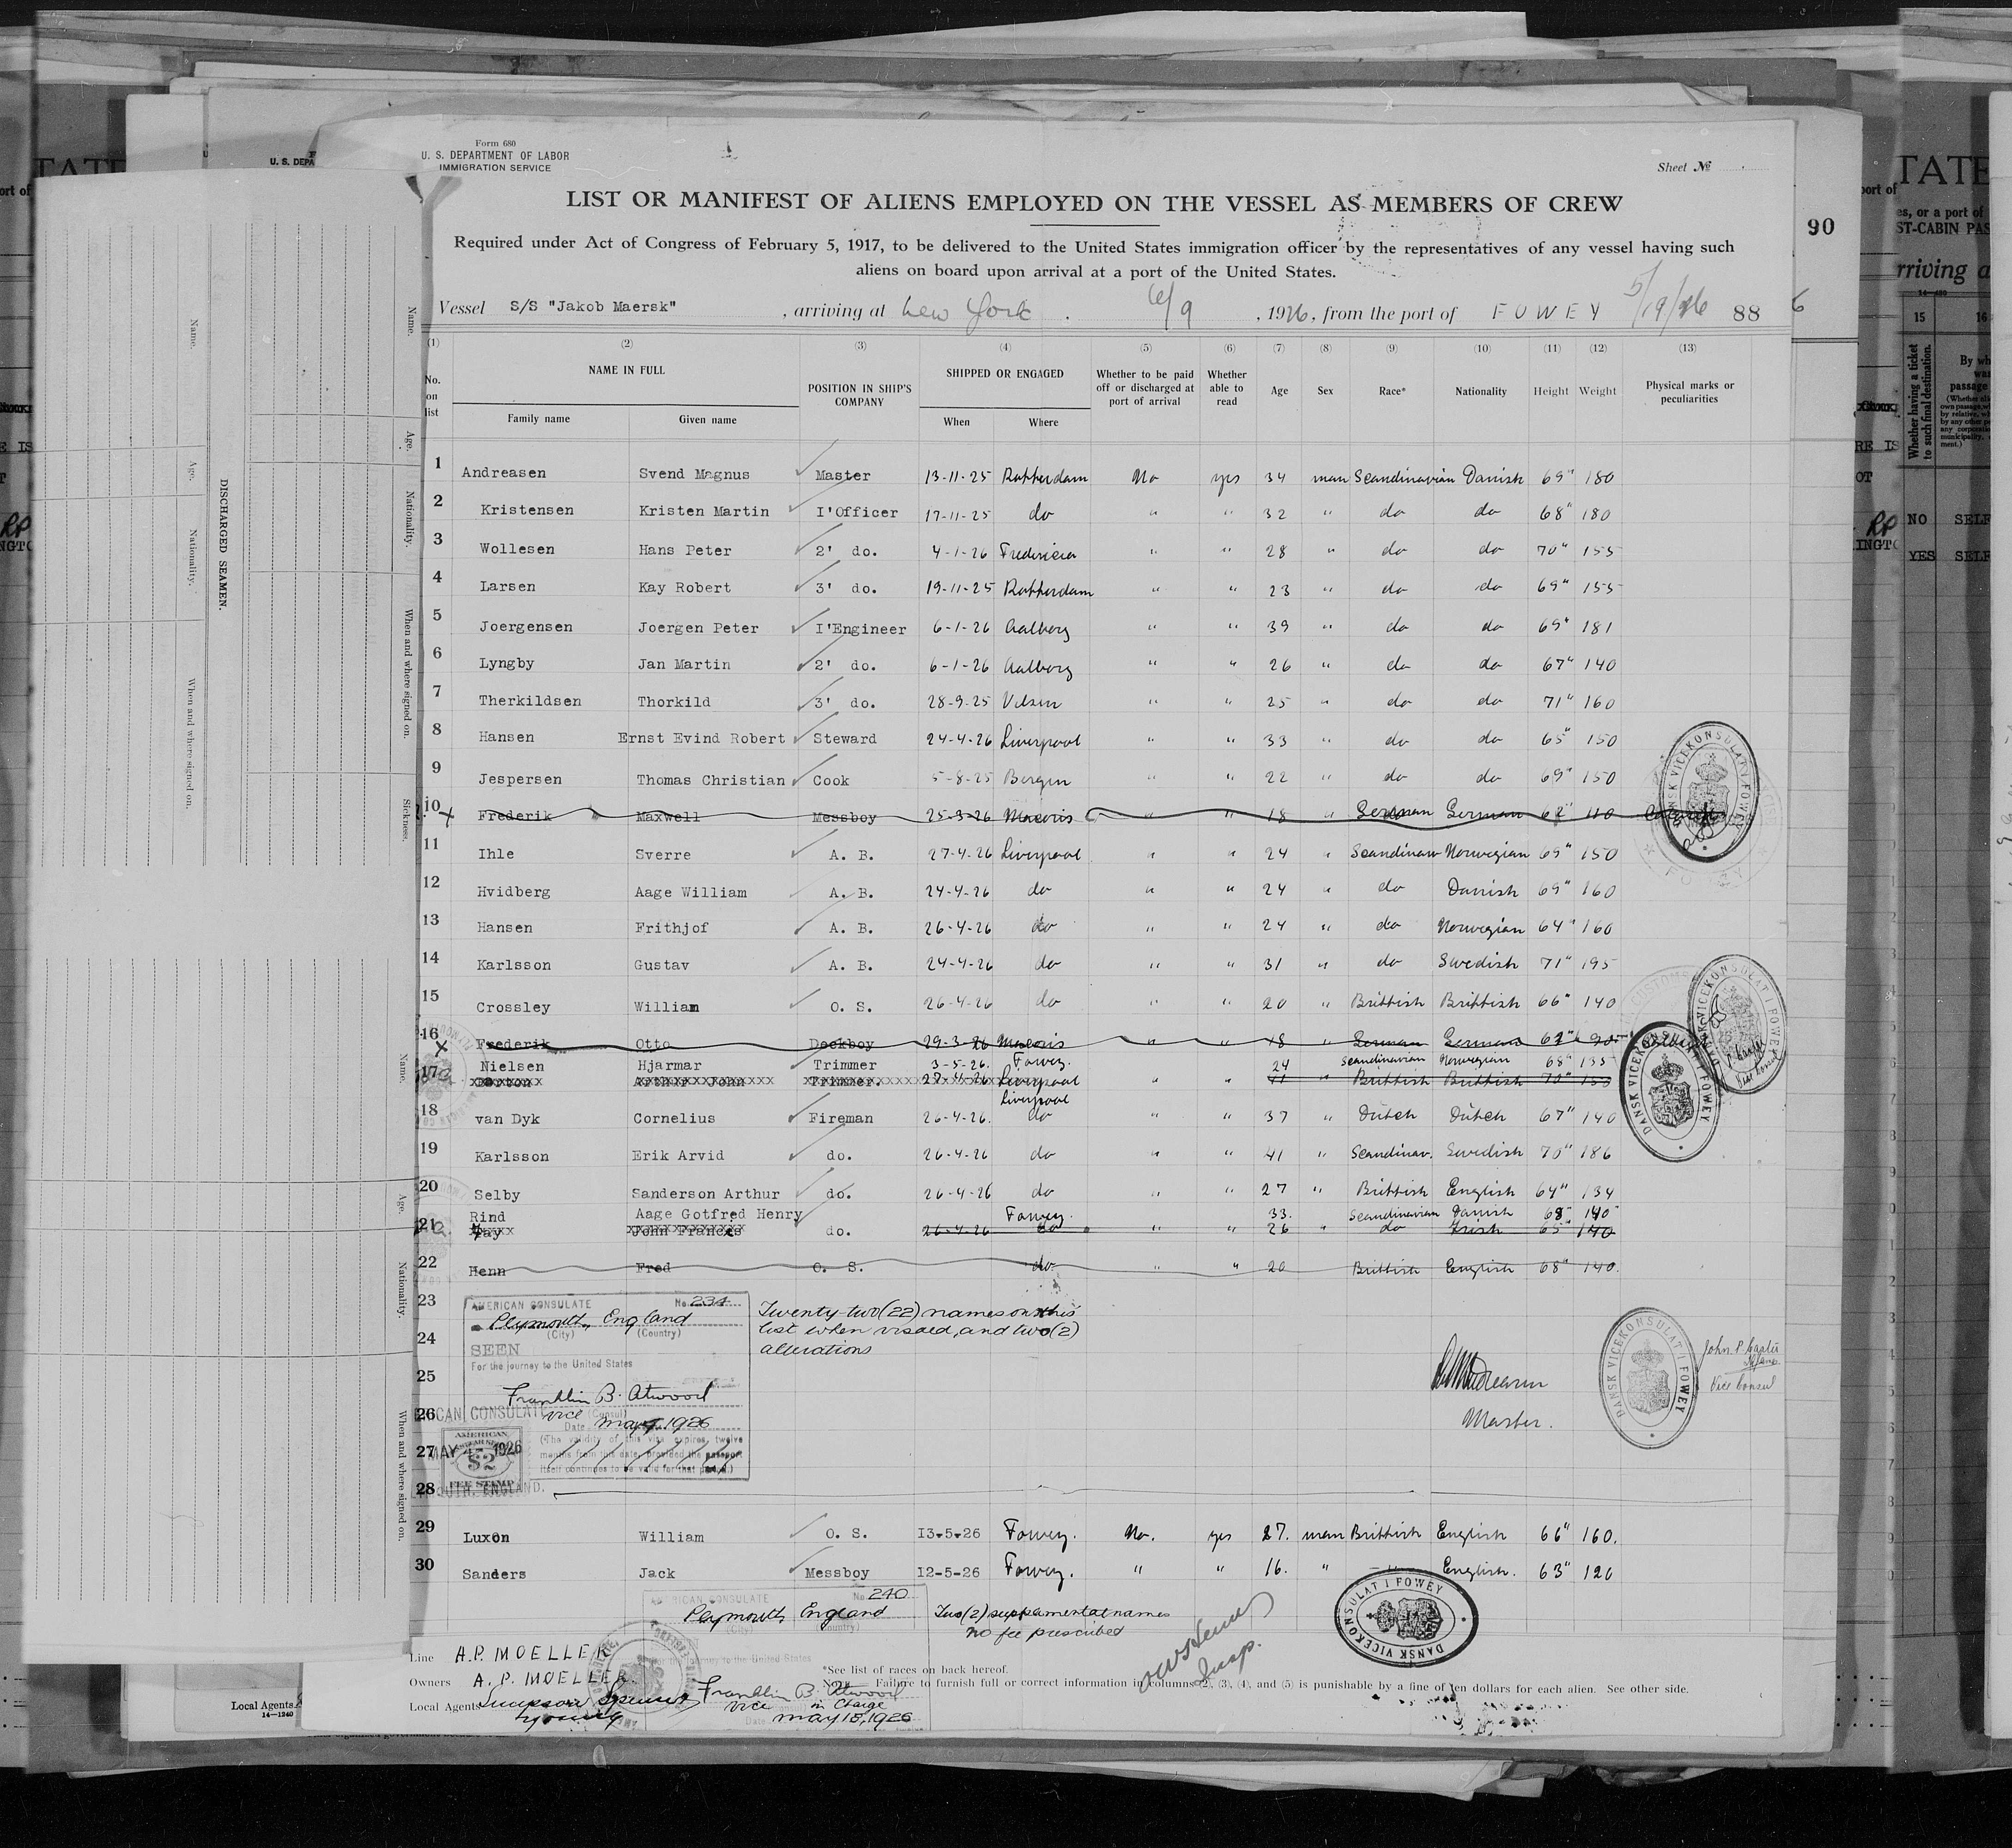 Form 680
U. S. DEPARTMENT OF LABOR
IMMIGRATION SERVICE
Sheet №
LIST OR MANIFEST OF ALIENS EMPLOYED ON THE VESSEL AS MEMBERS OF CREW
Required under Act of Congress of February 5, 1917, to be delivered to the United States immigration officer by the representatives of any vessel having such
aliens on board upon arrival at a port of the United States.
90
Vessel S/S "Jakob Maersk" , arriving at New York 6/9 , 1926, from the port of FOWEY 5/19/26 88
(1) (2) (3) (4) (5) (6) (7) (8) (9) (10) (11) (12) (13)
No. on list NAME IN FULL Family name Given name POSITION IN SHIP'S COMPANY SHIPPED OR ENGAGED When Where Whether to be paid off or discharged at port of arrival Whether able to read Age Sex Race* Nationality Height Weight Physical marks or peculiarities
1 Andreasen Svend Magnus Master 13-11-25 Rotterdam No yes 34 man Scandinavian Danish 69" 180
2 Kristensen Kristen Martin I'Officer 17-11-25 do " " 32 " do do 68" 180
3 Wollesen Hans Peter 2' do. 4-1-26 Fredericia " " 28 " do do 70" 155
4 Larsen Kay Robert 3' do. 19-11-25 Rotterdam " " 23 " do do 69" 155
5 Joergensen Joergen Peter I'Engineer 6-1-26 Aalborg " " 39 " do do 69" 181
6 Lyngby Jan Martin 2' do. 6-1-26 Aalborg " " 26 " do do 67" 140
7 Therkildsen Thorkild 3' do. 28-9-25 " " 25 " do do 71" 160
8 Hansen Ernst Evind Robert Steward 24-4-26 Liverpool " " 33 " do do 65" 150
9 Jespersen Thomas Christian Cook 5-8-25 Bergen " " 22 " do do 69" 150
10 Frederik Maxwell Messboy 25-3-26 Macoris " " 18 " German German 62" 110
11 Ihle Sverre A. B. 27-4-26 Liverpool " " 24 " Scandinav Norwegian 69" 150
12 Hvidberg Aage William A. B. 24-4-26 do " " 24 " do Danish 69" 160
13 Hansen Frithjof A. B. 26-4-26 do " " 24 " do Norwegian 64" 160
14 Karlsson Gustav A. B. 24-4-26 do " " 31 " do Swedish 71" 195
15 Crossley William O. S. 26-4-26 do " " 20 " Brittish Brittish 66" 140
16 Frederik Otto Deckboy 29-3-26 Macoris " " 18 " German German 62" 90
Nielsen Hjarmar Trimmer 3-5-26. Fowey. 24 Scandinavian Norwegian 68" 135
17 Barton Arthur John Trimmer. 27-4-26 Liverpool " " " Brittish Brittish 70"
Liverpool
18 van Dyk Cornelius Fireman 26-4-26. do " " 37 " Dutch Dutch 67" 140
19 Karlsson Erik Arvid do. 26-4-26 do " " 41 " Scandinav. Swedish 70" 186
20 Selby Sanderson Arthur do. 26-4-26 do " " 27 " Brittish English 64" 134
Rind Aage Gotfred Henry Fowey. 33. Scandinavian Danish 68 140
21 John Francis do. 26-4-26 do " " 26 " do Irish 65" 140
22 Henn Fred O. S. do " " 20 Brittish English 68" 140.
23
24
25
26
27
28
AMERICAN CONSULATE No. 234
Plymouth, England
(City) (Country)
SEEN
For the journey to the United States
Franklin B. Atwood
Vice (Consul)
Date May 4, 1926
(The validity of this visa expires twelve
months from this date, provided the passport
itself continues to be valid for that period.)
Twenty-two (22) names on this
list when visaed, and two (2)
alterations
MAY 4 1926
AMERICAN
$2
FEE STAMP
Andreasen
Master.
DANSK VICEKONSULAT I FOWEY
Vice Consul
29 Luxon William O. S. 13-5-26 Fowey. No. yes 27. man Brittish English 66" 160.
30 Sanders Jack Messboy 12-5-26 Fowey. " " 16. " " English. 63" 120
AMERICAN CONSULATE No. 240
Plymouth England
(City) (Country)
For the journey to the United States
Franklin B. Atwood
Vice in Charge
Date May 15, 1926
Two (2) supplemental names
no fee prescribed
Insp.
DANSK VICEKONSULAT I FOWEY
Line A.P. MOELLER
Owners A. P. MOELLER
Local Agents Simpson Spence Young
*See list of races on back hereof.
Failure to furnish full or correct information in columns 2, (3), (4), and (5) is punishable by a fine of ten dollars for each alien. See other side.
DISCHARGED SEAMEN.
Name.
Age.
Nationality.
When and where signed on.
Sickness.
Name.
Age.
Nationality.
When and where signed on.
Local Agents
14—1240